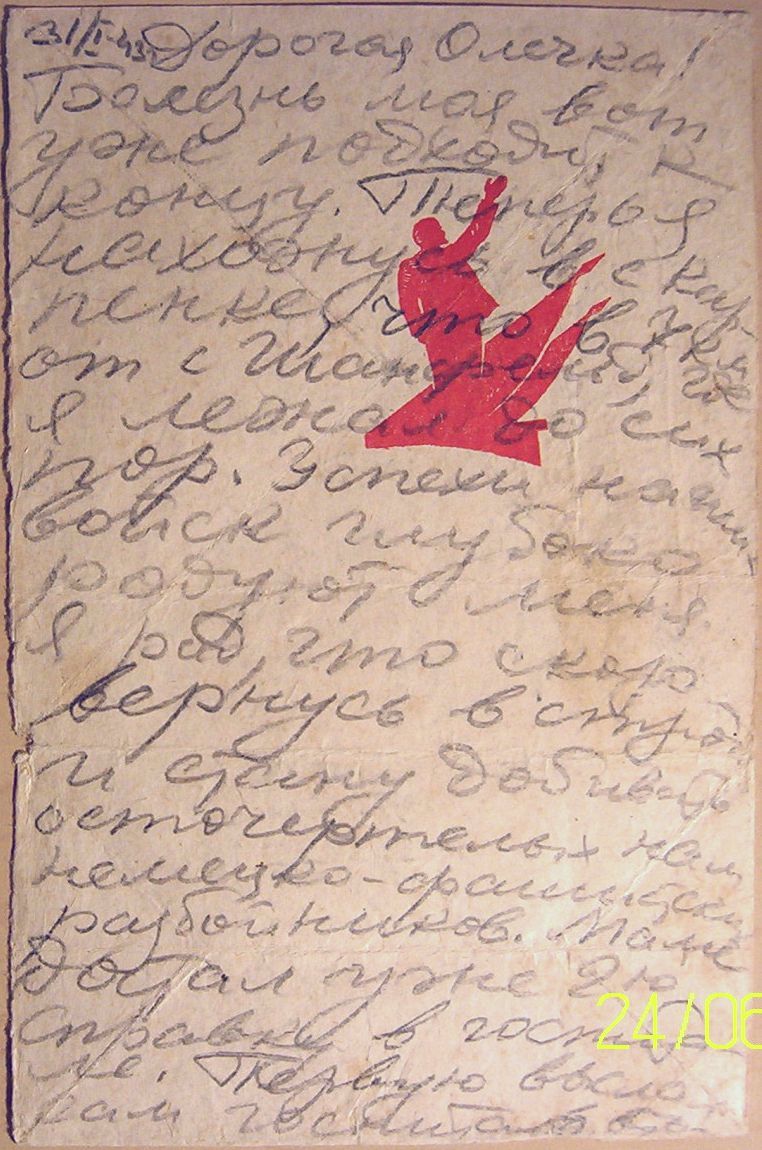 31/I-43. Дорогая Олечка!
Болезнь моя вот
уже подходит к
концу. Теперь я
нахожусь в Скар-
пенке, что в 7 км
от с Шандреиб, где
я лежал до сих
пор. Успехи наших
войск глубоко
радуют меня.
Я рад, что скоро
вернусь в строй
и стану добивать
осточертелых нам
немецко-фашистских
разбойников. Маме
достал уже 2ю
справку в госпита-
ле. Первую выслал
вам госпиталь
24/06